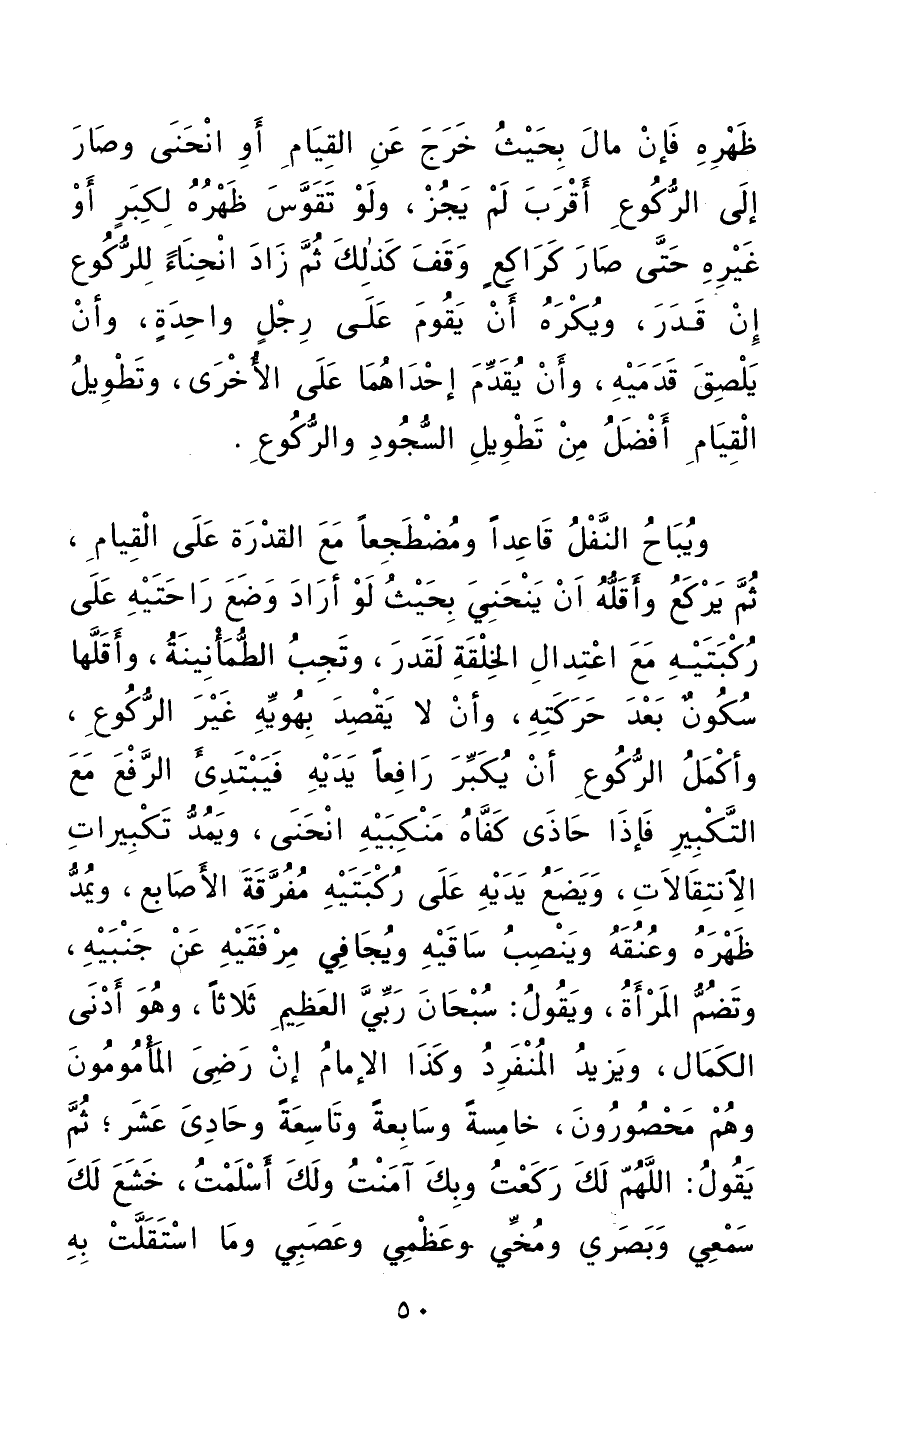 ظَهْرِهِ فَإِنْ مالَ بِحَيْثُ خَرَجَ عَنِ القِيَامِ أَوِ انْحَنَى وصَارَ
إلَى الرُّكُوعِ أَقْرَبَ لَمْ يَجُزْ، ولَوْ تَقَوَّسَ ظَهْرُهُ لِكِبَرٍ أَوْ
غَيْرِهِ حَتَّى صارَ كَرَاكِعٍ وَقَفَ كَذلِكَ ثُمَّ زَادَ انْحِنَاءً لِلرُّكُوعِ
إِنْ قَدَرَ، ويُكْرَهُ أَنْ يَقُومَ عَلَى رِجْلٍ واحِدَةٍ، وأنْ
يَلْصِقَ قَدَمَيْهِ، وأَنْ يُقَدِّمَ إحْدَاهُمَا عَلَى الأُخْرَى، وتَطْوِيلُ
الْقِيَامِ أَفْضَلُ مِنْ تَطْوِيلِ السُّجُودِ والرُّكُوعِ .
ويُبَاحُ النَّفْلُ قَاعِداً ومُضْطَجِعاً مَعَ القدْرَة عَلَى الْقِيامِ ،
ثُمَّ يَرْكَعُ وأَقَلُّهُ اَنْ يَنْحَنِيَ بِحَيْثُ لَوْ أرَادَ وَضَعَ رَاحَتَيْهِ عَلَى
رُكْبَتَيْهِ مَعَ اعْتِدالِ الخِلْقَةِ لَقَدرَ، وتَجِبُ الطُّمَأْنِينَةُ، وأَقَلَّها
سُكُونٌ بَعْدَ حَرَكَتِهِ، وأنْ لا يَقْصِدَ بِهُويِّهِ غَيْرَ الرُّكُوعِ ،
وأكْمَلُ الرُّكُوعِ أنْ يُكَبِّرَ رَافِعاً يَدَيْهِ فَيَبْتَدِئَ الرَّفْعَ مَعَ
التَّكْبِيرِ فَإِذَا حَاذَى كَفَّاهُ مَنْكِبَيْهِ انْحَنَى، ويَمُدُّ تَكْبِيراتِ
الِانتِقَالَاتِ، وَيَضَعُ يَدَيْهِ عَلَى رُكْبَتَيْهِ مُفُرَّقَةَ الأَصَابِع، ويمُدُّ
ظَهْرَهُ وعُنُقَهُ ويَنْصِبُ سَاقَيْهِ ويُجَافِي مِرْفَقَيْهِ عَنْ جَنْبَيْهِ،
وتَضُمُّ المَرْأَةُ، ويَقُولُ: سُبْحَانَ رَبِّيَّ العَظِيمِ ثَلَاثاً، وهُوَ أَدْنَى
الكَمَال، ويَزِيدُ المُنْفَرِدُ وكَذَا الإمامُ إنْ رَضِىَ المَأْمُومُونَ
وهُمْ مَحْصُورُونَ، خامِسةً وسَابِعةً وتَاسِعَةً وحَادِىَ عَشَر؛ ثُمَّ
يَقُولُ: اللَّهُمّ لَكَ رَكَعْتُ وبِكَ آمَنْتُ ولَكَ أَسْلَمْتُ، خَشَعَ لَكَ
سَمْعِي وَبَصَرَي ومُخِّي وعَظْمِي وعَصَبِي ومَا اسْتَقَلَّتْ بِهِ
٥٠